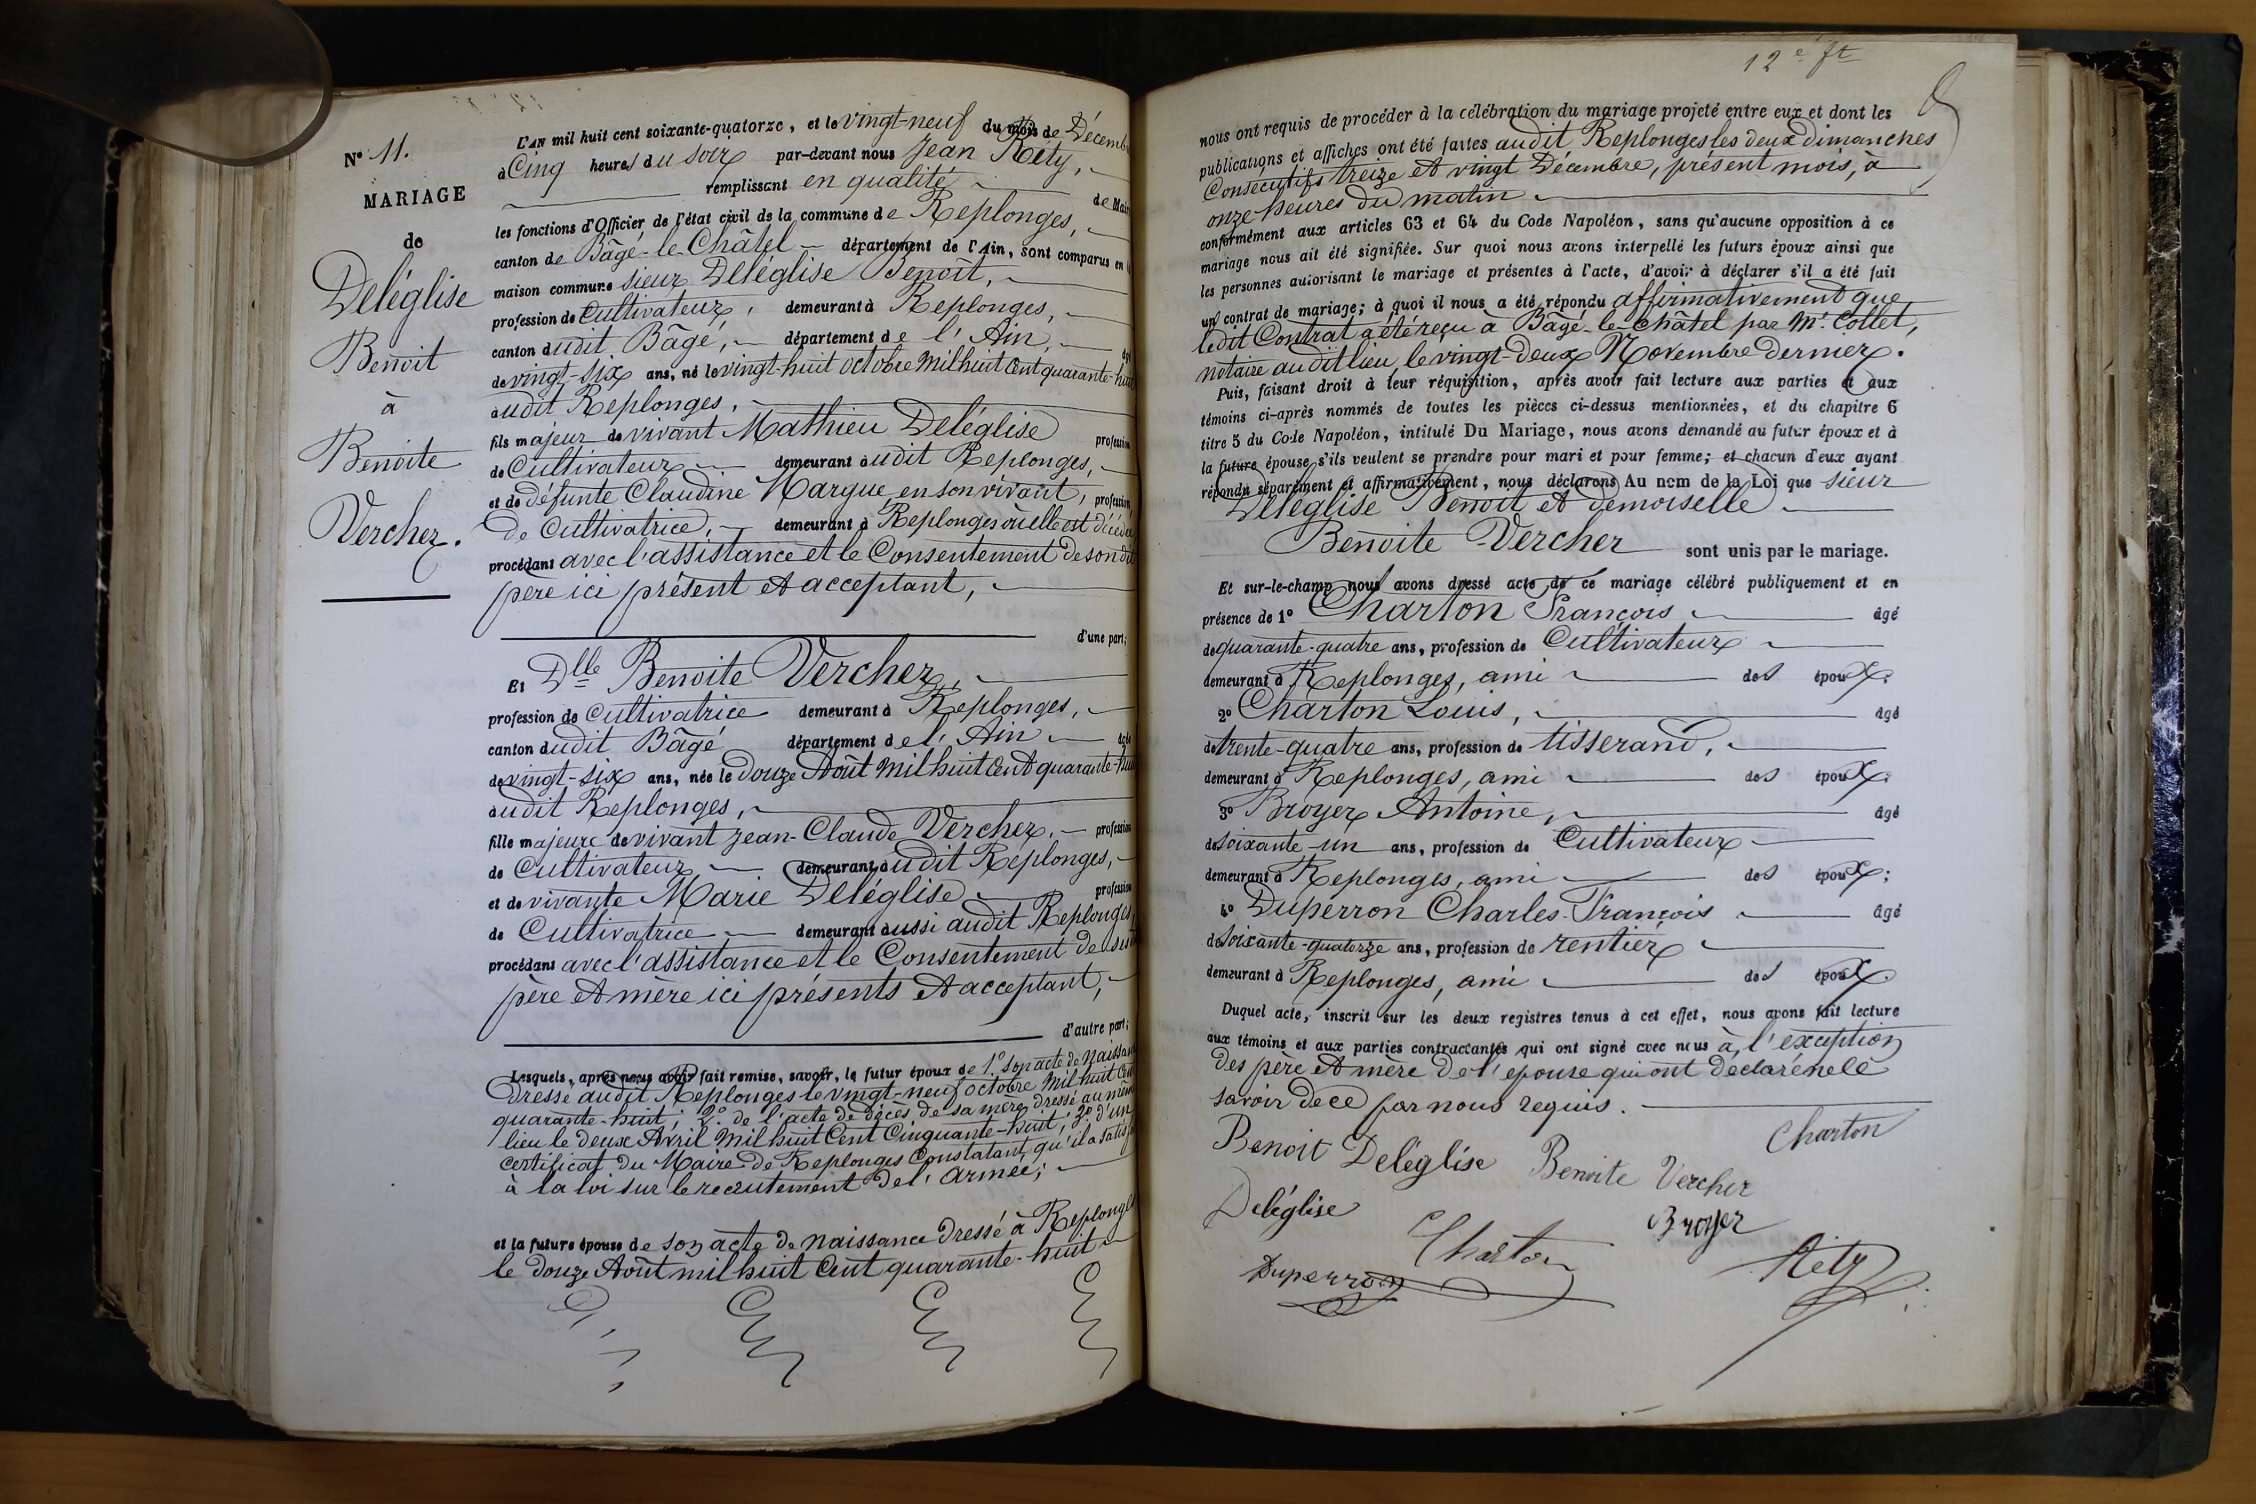 N° 11.
MARIAGE
de
Deléglise
Benoit
à
Benoite
Vercher.
L'AN mil huit cent soixante-quatorze, et le vingt-neuf du mois de Décemb
à Cinq heures du soir par-devant nous Jean Réty,
remplissant en qualité de Mair
les fonctions d'Officier de l'état civil de la commune de Replonges,
canton de Bâgé-le-Châtel département de l'Ain, sont comparus en
maison commune sieur Deléglise Benoît,
profession de Cultivateur, demeurant à Replonges,
canton dudit Bâgé, département de l'Ain,
de vingt-six ans, né le vingt-huit octobre Mil huit Cent quarante-huit
audit Replonges,
fils majeur de vivant Mathieu Deléglise profession
de Cultivateur demeurant audit Replonges,
et de défunte Claudine Margue, en son vivant, profession
de Cultivatrice, demeurant à Replonges où elle est décédée
procédant avec l'assistance et le Consentement de son dit
père ici présent et acceptant,
d'une part;
Et Dlle Benoite Vercher,
profession de Cultivatrice demeurant à Replonges,
canton dudit Bâgé département de l'Ain âgée
de vingt-six ans, née le douze Août Mil huit Cent quarante-huit
audit Replonges,
fille majeure de vivant Jean-Claude Vercher, profession
de Cultivateur demeurant audit Replonges,
et de vivante Marie Deléglise profession
de Cultivatrice demeurant aussi audit Replonges
procédant avec l'assistance et le Consentement de ses
père et mère ici présents et acceptant,
d'autre part;
Lesquels, après nous avoir fait remise, savoir, le futur époux de 1° son acte de Naissance
dressé audit Replonges le vingt-neuf octobre Mil huit Cent
quarante-huit; 2° de l'acte de décès de sa mère dressé au même
lieu le deux Avril Mil huit Cent Cinquante-huit; 3° d'un
certificat du Maire de Replonges Constatant qu'il a satisfait
à la loi sur le recrutement de l'Armée;
et la future épouse de son acte de naissance dressé à Replonges
le douze Août mil huit Cent quarante-huit
12e ft
nous ont requis de procéder à la célébration du mariage projeté entre eux et dont les
publications et affiches ont été faites audit Replonges les deux dimanches
Consécutifs treize et vingt Décembre, présent mois, à
onze heures du matin
conformément aux articles 63 et 64 du Code Napoléon, sans qu'aucune opposition à ce
mariage nous ait été signifiée. Sur quoi nous avons interpellé les futurs époux ainsi que
les personnes autorisant le mariage et présentes à l'acte, d'avoir à déclarer s'il a été fait
un contrat de mariage; à quoi il nous a été répondu affirmativement que
ledit Contrat a été reçu à Bâgé-le-Châtel par Mr Collet,
notaire audit lieu, le vingt-deux Novembre dernier.
Puis, faisant droit à leur réquisition, après avoir fait lecture aux parties et aux
témoins ci-après nommés de toutes les pièces ci-dessus mentionnées, et du chapitre 6
titre 5 du Code Napoléon, intitulé Du Mariage, nous avons demandé au futur époux et à
la future épouse s'ils veulent se prendre pour mari et pour femme; et chacun d'eux ayant
répondu séparément et affirmativement, nous déclarons Au nom de la Loi que sieur
Deléglise Benoît et demoiselle
Benoite Vercher sont unis par le mariage.
Et sur-le-champ nous avons dressé acte de ce mariage célébré publiquement et en
présence de 1° Charton François âgé
de quarante-quatre ans, profession de Cultivateur
demeurant à Replonges, ami des époux;
2° Charton Louis, âgé
de trente-quatre ans, profession de tisserand,
demeurant à Replonges, ami des époux;
3° Broyer Antoine, âgé
de soixante-un ans, profession de Cultivateur
demeurant à Replonges, ami des époux;
4° Duperron Charles-François âgé
de soixante-quatorze ans, profession de rentier
demeurant à Replonges, ami des époux.
Duquel acte, inscrit sur les deux registres tenus à cet effet, nous avons fait lecture
aux témoins et aux parties contractantes qui ont signé avec nous à l'exception
des père et mère de l'épouse qui ont déclaré ne le
savoir de ce par nous requis.
Charton
Benoit Deléglise Benoite Vercher
Deléglise Charton Broyer
Duperron Réty